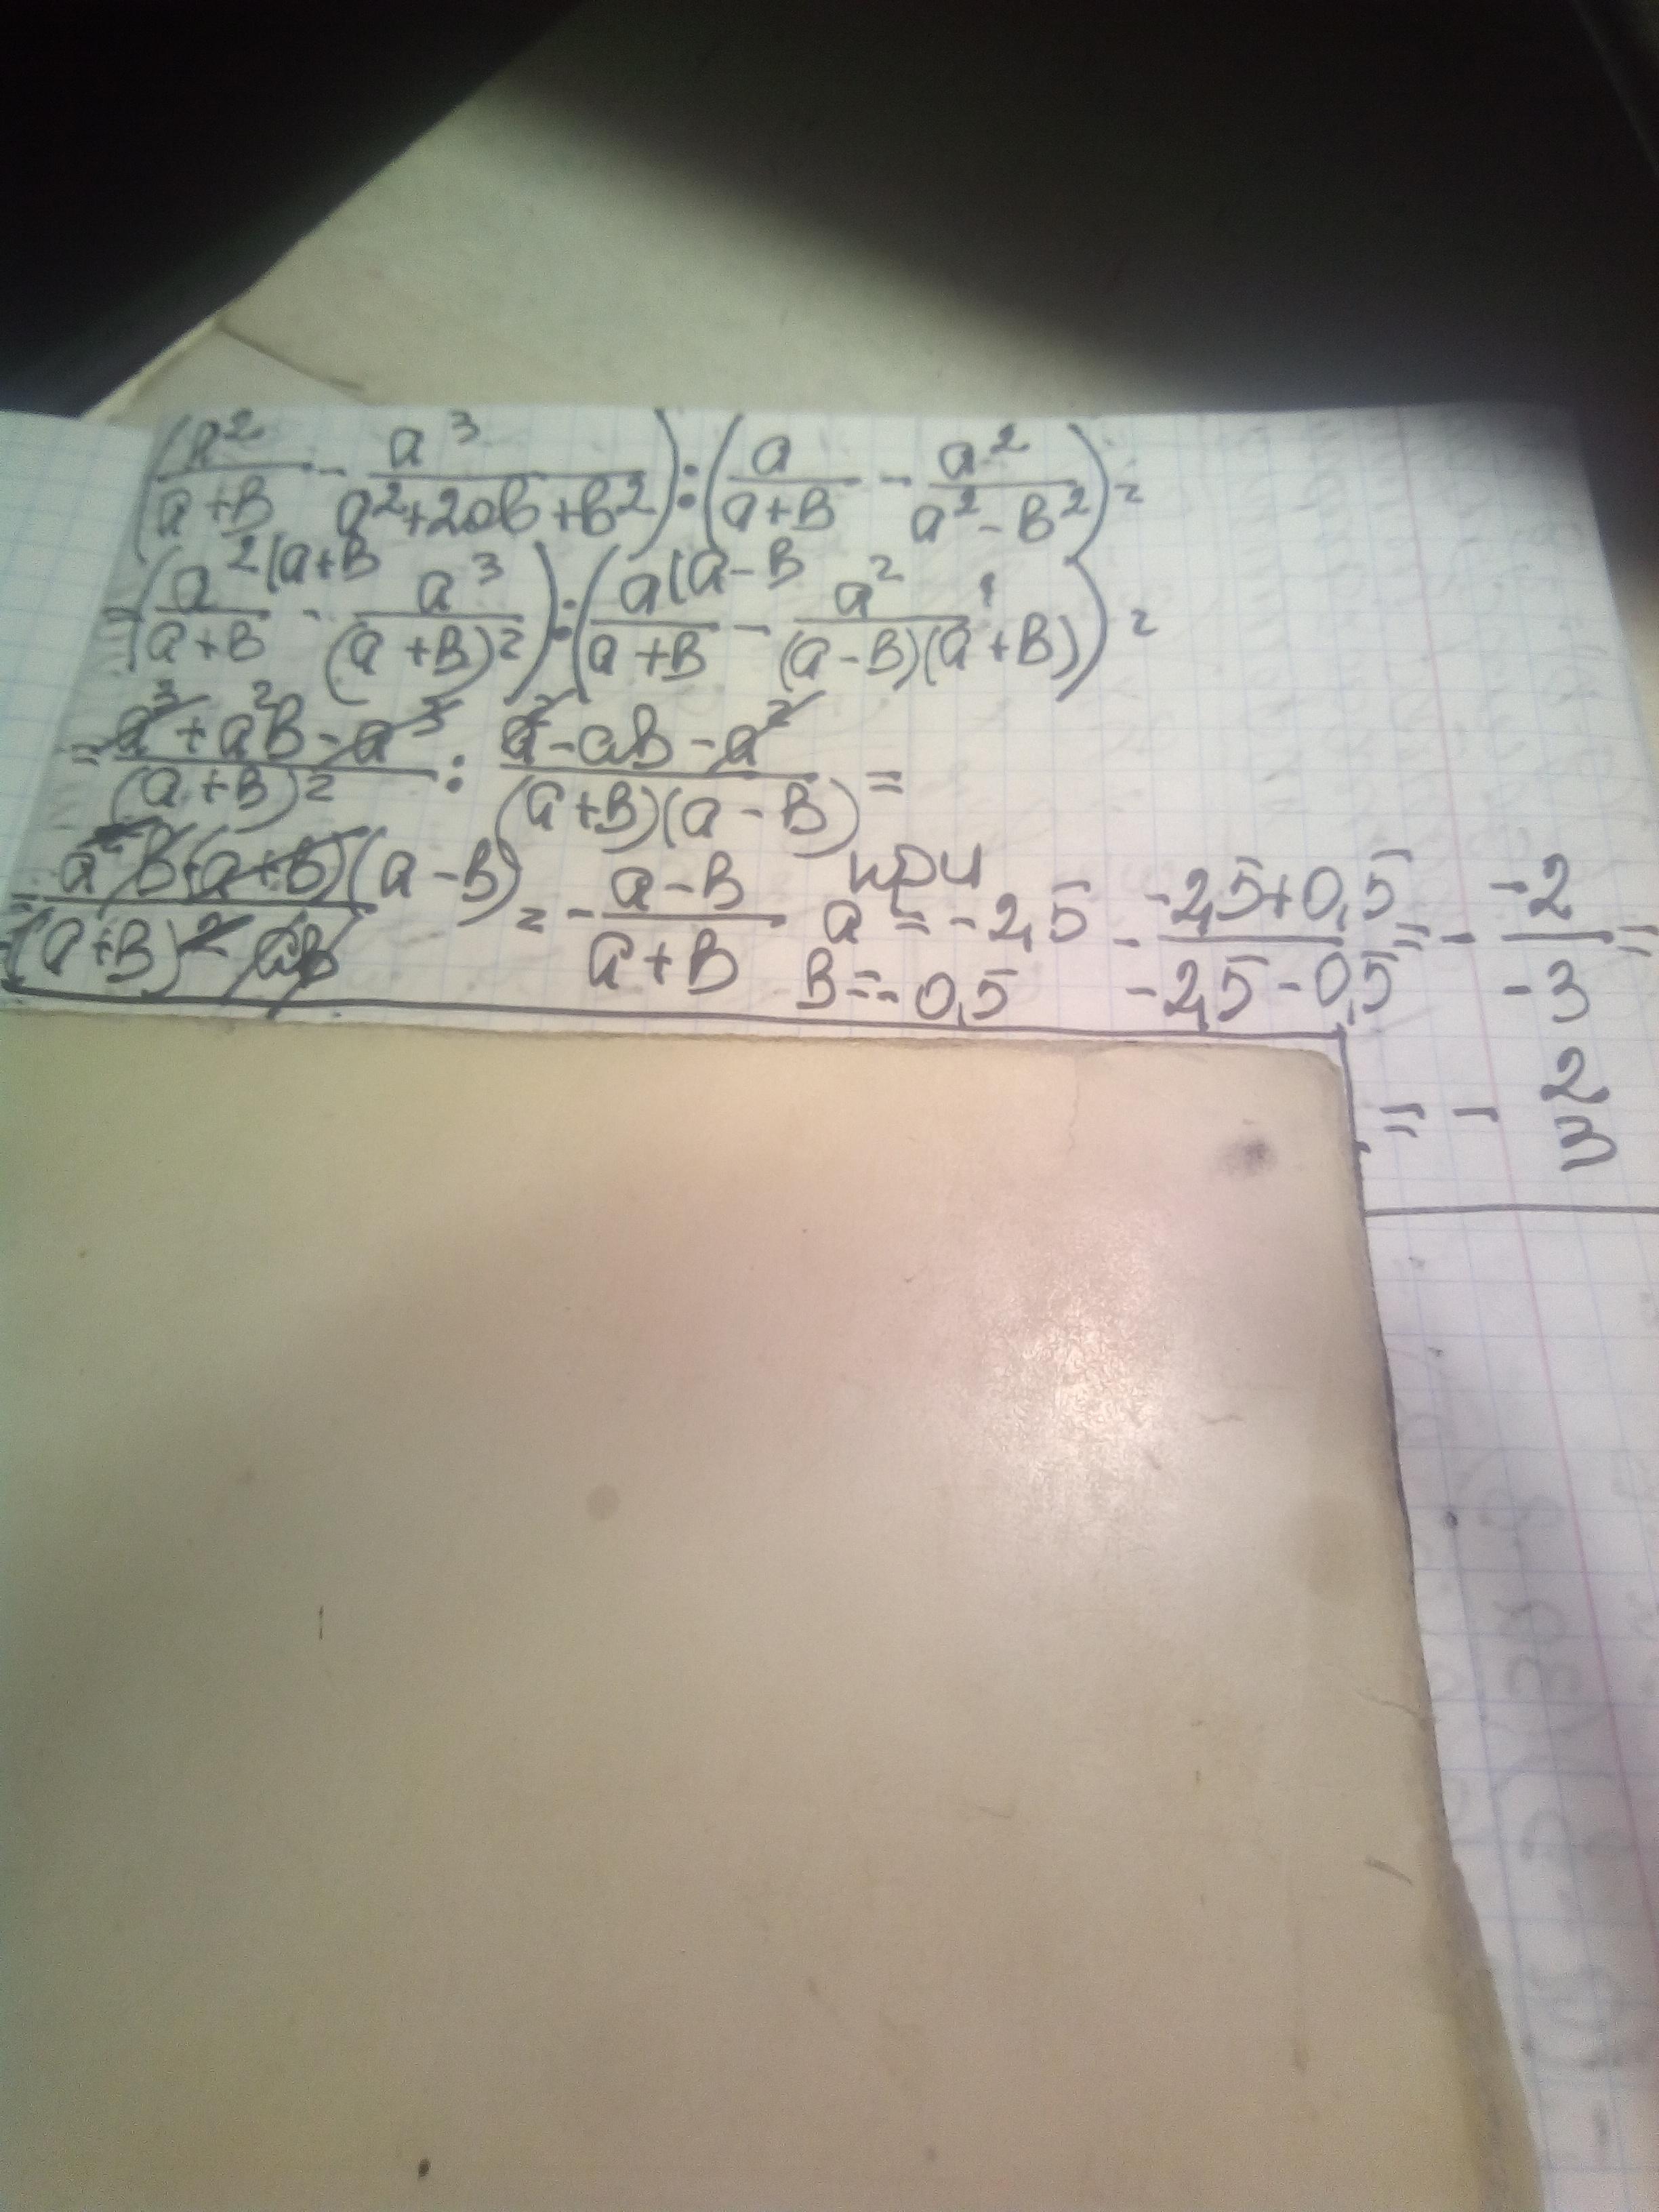 (a²/(a+B) - a³/(a²+2aB+B²)) : (a/(a+B) - a²/(a²-B²)) =
= (a²(a+B/(a+B) - a³/(a+B)²) : (a(a-B/(a+B) - a²/((a-B)(a+B))) =
= (a³+a²B-a³)/(a+B)² : (a²-aB-a²)/((a+B)(a-B)) =
= a²B(a+B)(a-B)/((a+B)² aB) = - (a-B)/(a+B) при a = -2,5 B = -0,5 - (-2,5+0,5)/(-2,5-0,5) = - (-2)/(-3) =
= - 2/3